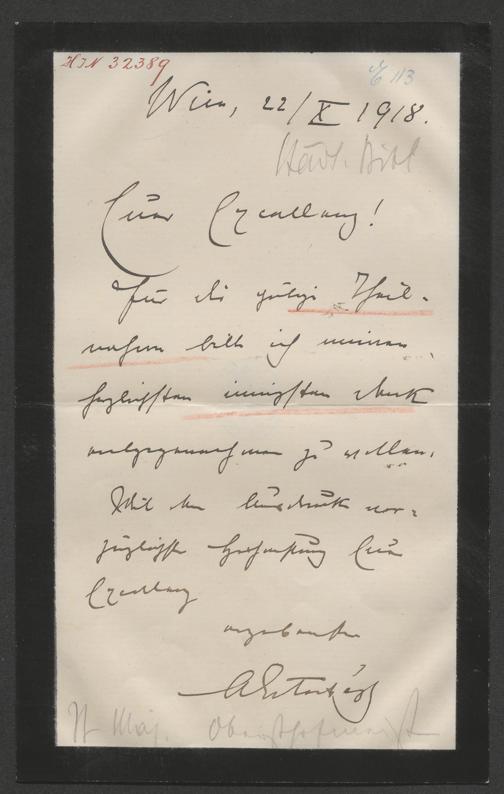 HIN 32389
113
Wien, 22/X 1918.
Städt. Bibl
Euer Exzellenz!
Für die gütige Theil-
nahme bitte ich meinen
herzlichsten innigsten Dank
entgegennehmen zu wollen.
Mit dem Ausdruck vor-
züglichster Hochachtung Euer
Exzellenz
ergebenster
AEsterházy
Maj. Obersthofmeist